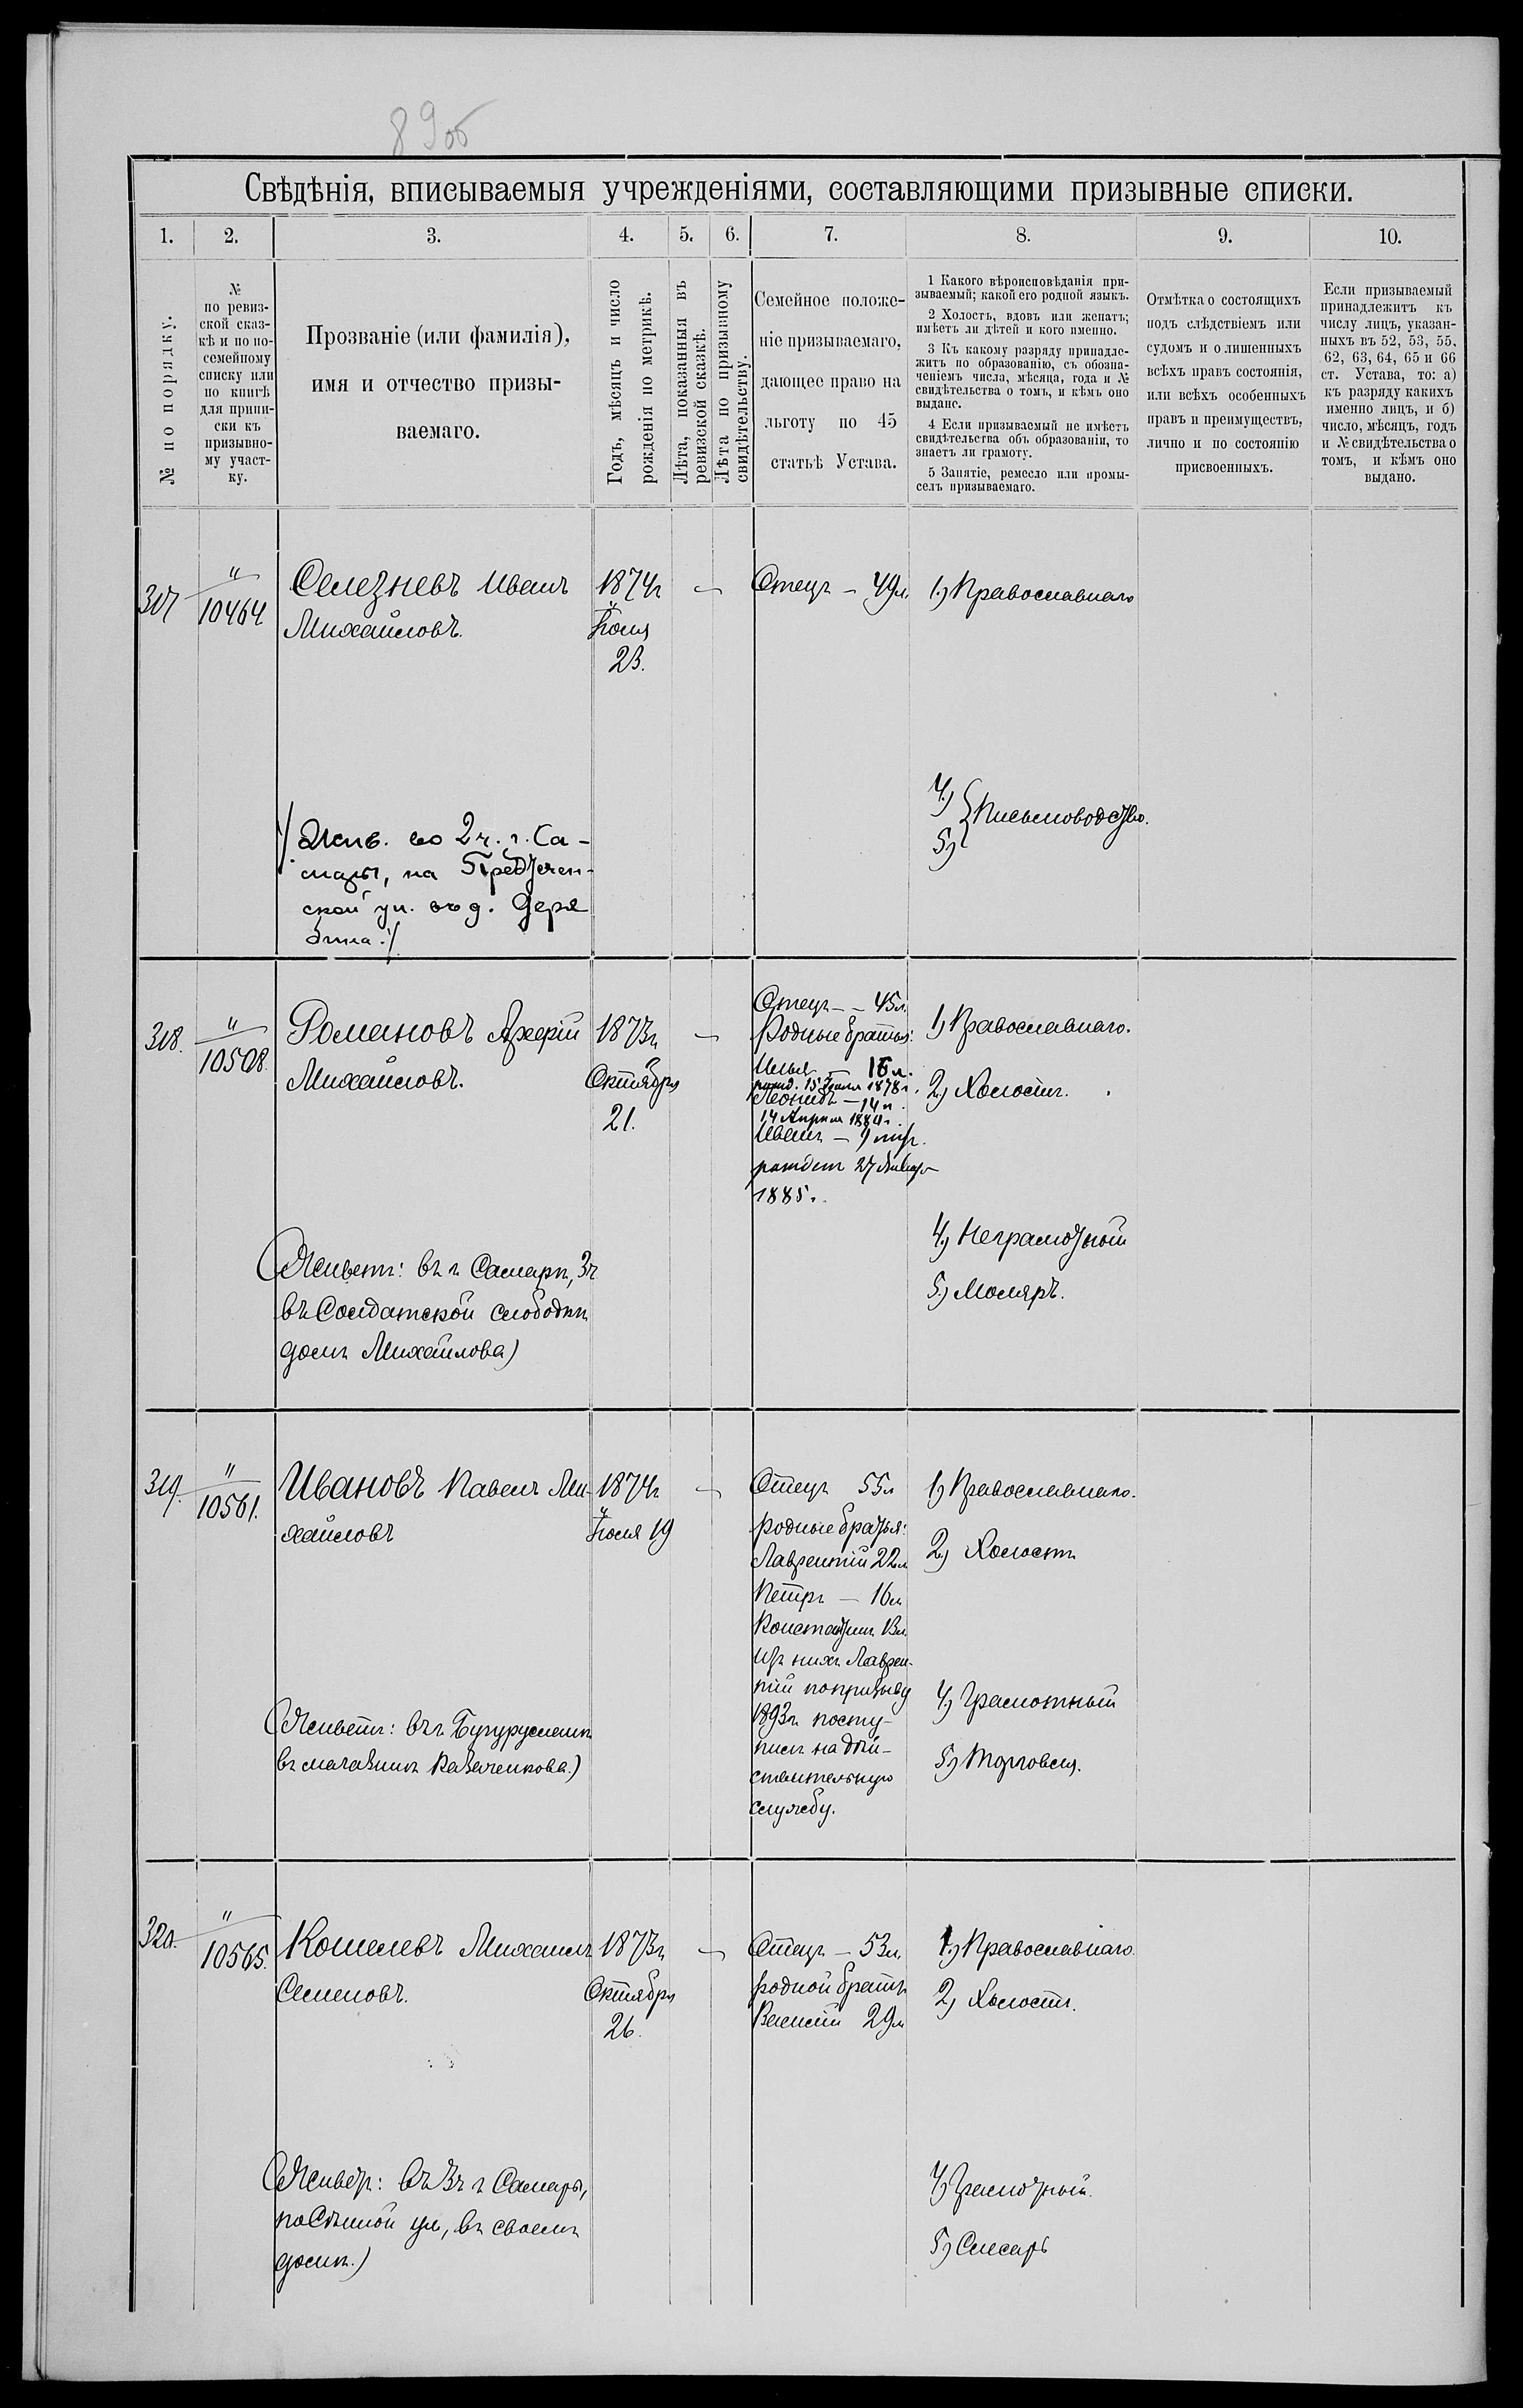 89об
Свѣдѣнія, вписываемыя учрежденіями, составляющими призывные списки.
1. 2. 3. 4. 5. 6. 7. 8. 9. 10.
№ по порядку.
№
по ревиз-
ской сказ-
кѣ и по по-
семейному
списку или
по книгѣ
для припи-
ски къ
призывно-
му участ-
ку.
Прозваніе (или фамилія),
имя и отчество призы-
ваемаго.
Годъ, мѣсяцъ и число
рожденія по метрикѣ.
Лѣта, показанныя въ
ревизской сказкѣ.
Лѣта по призывному
свидѣтельству.
Семейное положе-
ніе призываемаго,
дающее право на
льготу по 45
статьѣ Устава.
1 Какого вѣроисповѣданія при-
зываемый; какой его родной языкъ.
2 Холостъ, вдовъ или женатъ;
имѣетъ ли дѣтей и кого именно.
3 Къ какому разряду принадле-
житъ по образованію, съ обозна-
ченіемъ числа, мѣсяца, года и №
свидѣтельства о томъ, и кѣмъ оно
выдано.
4 Если призываемый не имѣетъ
свидѣтельства объ образованіи, то
знаетъ ли грамоту.
5 Занятіе, ремесло или промы-
селъ призываемаго.
Отмѣтка о состоящихъ
подъ слѣдствіемъ или
судомъ и о лишенныхъ
всѣхъ правъ состоянія,
или всѣхъ особенныхъ
правъ и преимуществъ,
лично и по состоянію
присвоенныхъ.
Если призываемый
принадлежитъ къ
числу лицъ, указан-
ныхъ въ 52, 53, 55,
62, 63, 64, 65 и 66
ст. Устава, то: а)
къ разряду какихъ
именно лицъ, и б)
число, мѣсяцъ, годъ
и № свидѣтельства о
томъ, и кѣмъ оно
выдано.
317
"
10464
Селезневъ Иванъ
Михайловъ.
1874г
Іюля
23.
—
Отецъ — 49л.
1) Православнаго
4)
5) Письмоводство.
/Жив. во 2ч. г. Са-
мары, на Предтечен-
ской ул. въ д. Деря
бина:/
318.
"
10508.
Романовъ
Михайловъ.
1873г
Октября
21.
—
Отецъ — 45л.
Родные братья:
Илья — 16л.
рожд. 15 1878г.
Леонидъ — 14л.
14 Апрѣля
Иванъ — 9 лѣт.
рожден 27 Января
1885г.
1) Православнаго.
2) Холостъ.
4) Неграмотный
5) Моляръ.
(Живетъ: въ г Самарѣ, 3ч
въ Солдатской слободкѣ
домъ Михайлова)
319.
"
10561.
Ивановъ Павелъ Ми-
хайловъ
1874г
Іюля 19
—
Отецъ 55л
родные братья:
Лаврентій 22л
Петръ — 16л
Константинъ 13л.
Изъ нихъ Лаврен-
тій по призыву
1893г. посту-
пилъ на дѣй-
ствительную
службу.
1) Православнаго.
2) Холостъ
4) Грамотный
5) Торговля.
(Живетъ: въ г Бугурусланѣ
въ магазинѣ Казаченкова.)
320.
"
10565.
Кошелевъ Михаилъ
Семеновъ.
1873г
Октября
26.
—
Отецъ — 53л.
родной братъ
Василій 29л
1) Православнаго.
2) Холостъ.
4) Грамотный.
5) Слесарь
(Живет: въ 3ч г Самары,
по Сѣнной ул, въ своемъ
домѣ.)